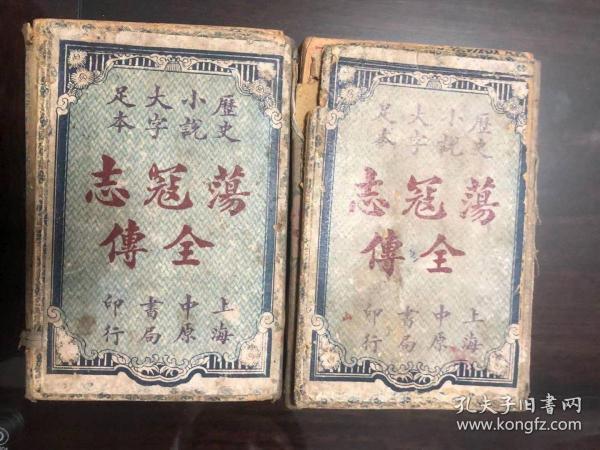 歷史小説大字足本
蕩寇志
全傳
上海中原書局印行
歷史小説大字足本
蕩寇志
全傳
上海中原書局印行
孔夫子旧書网
www.kongfz.com